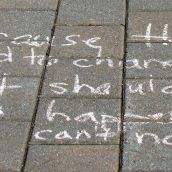 cause
d to chan
t should
hap
can't no